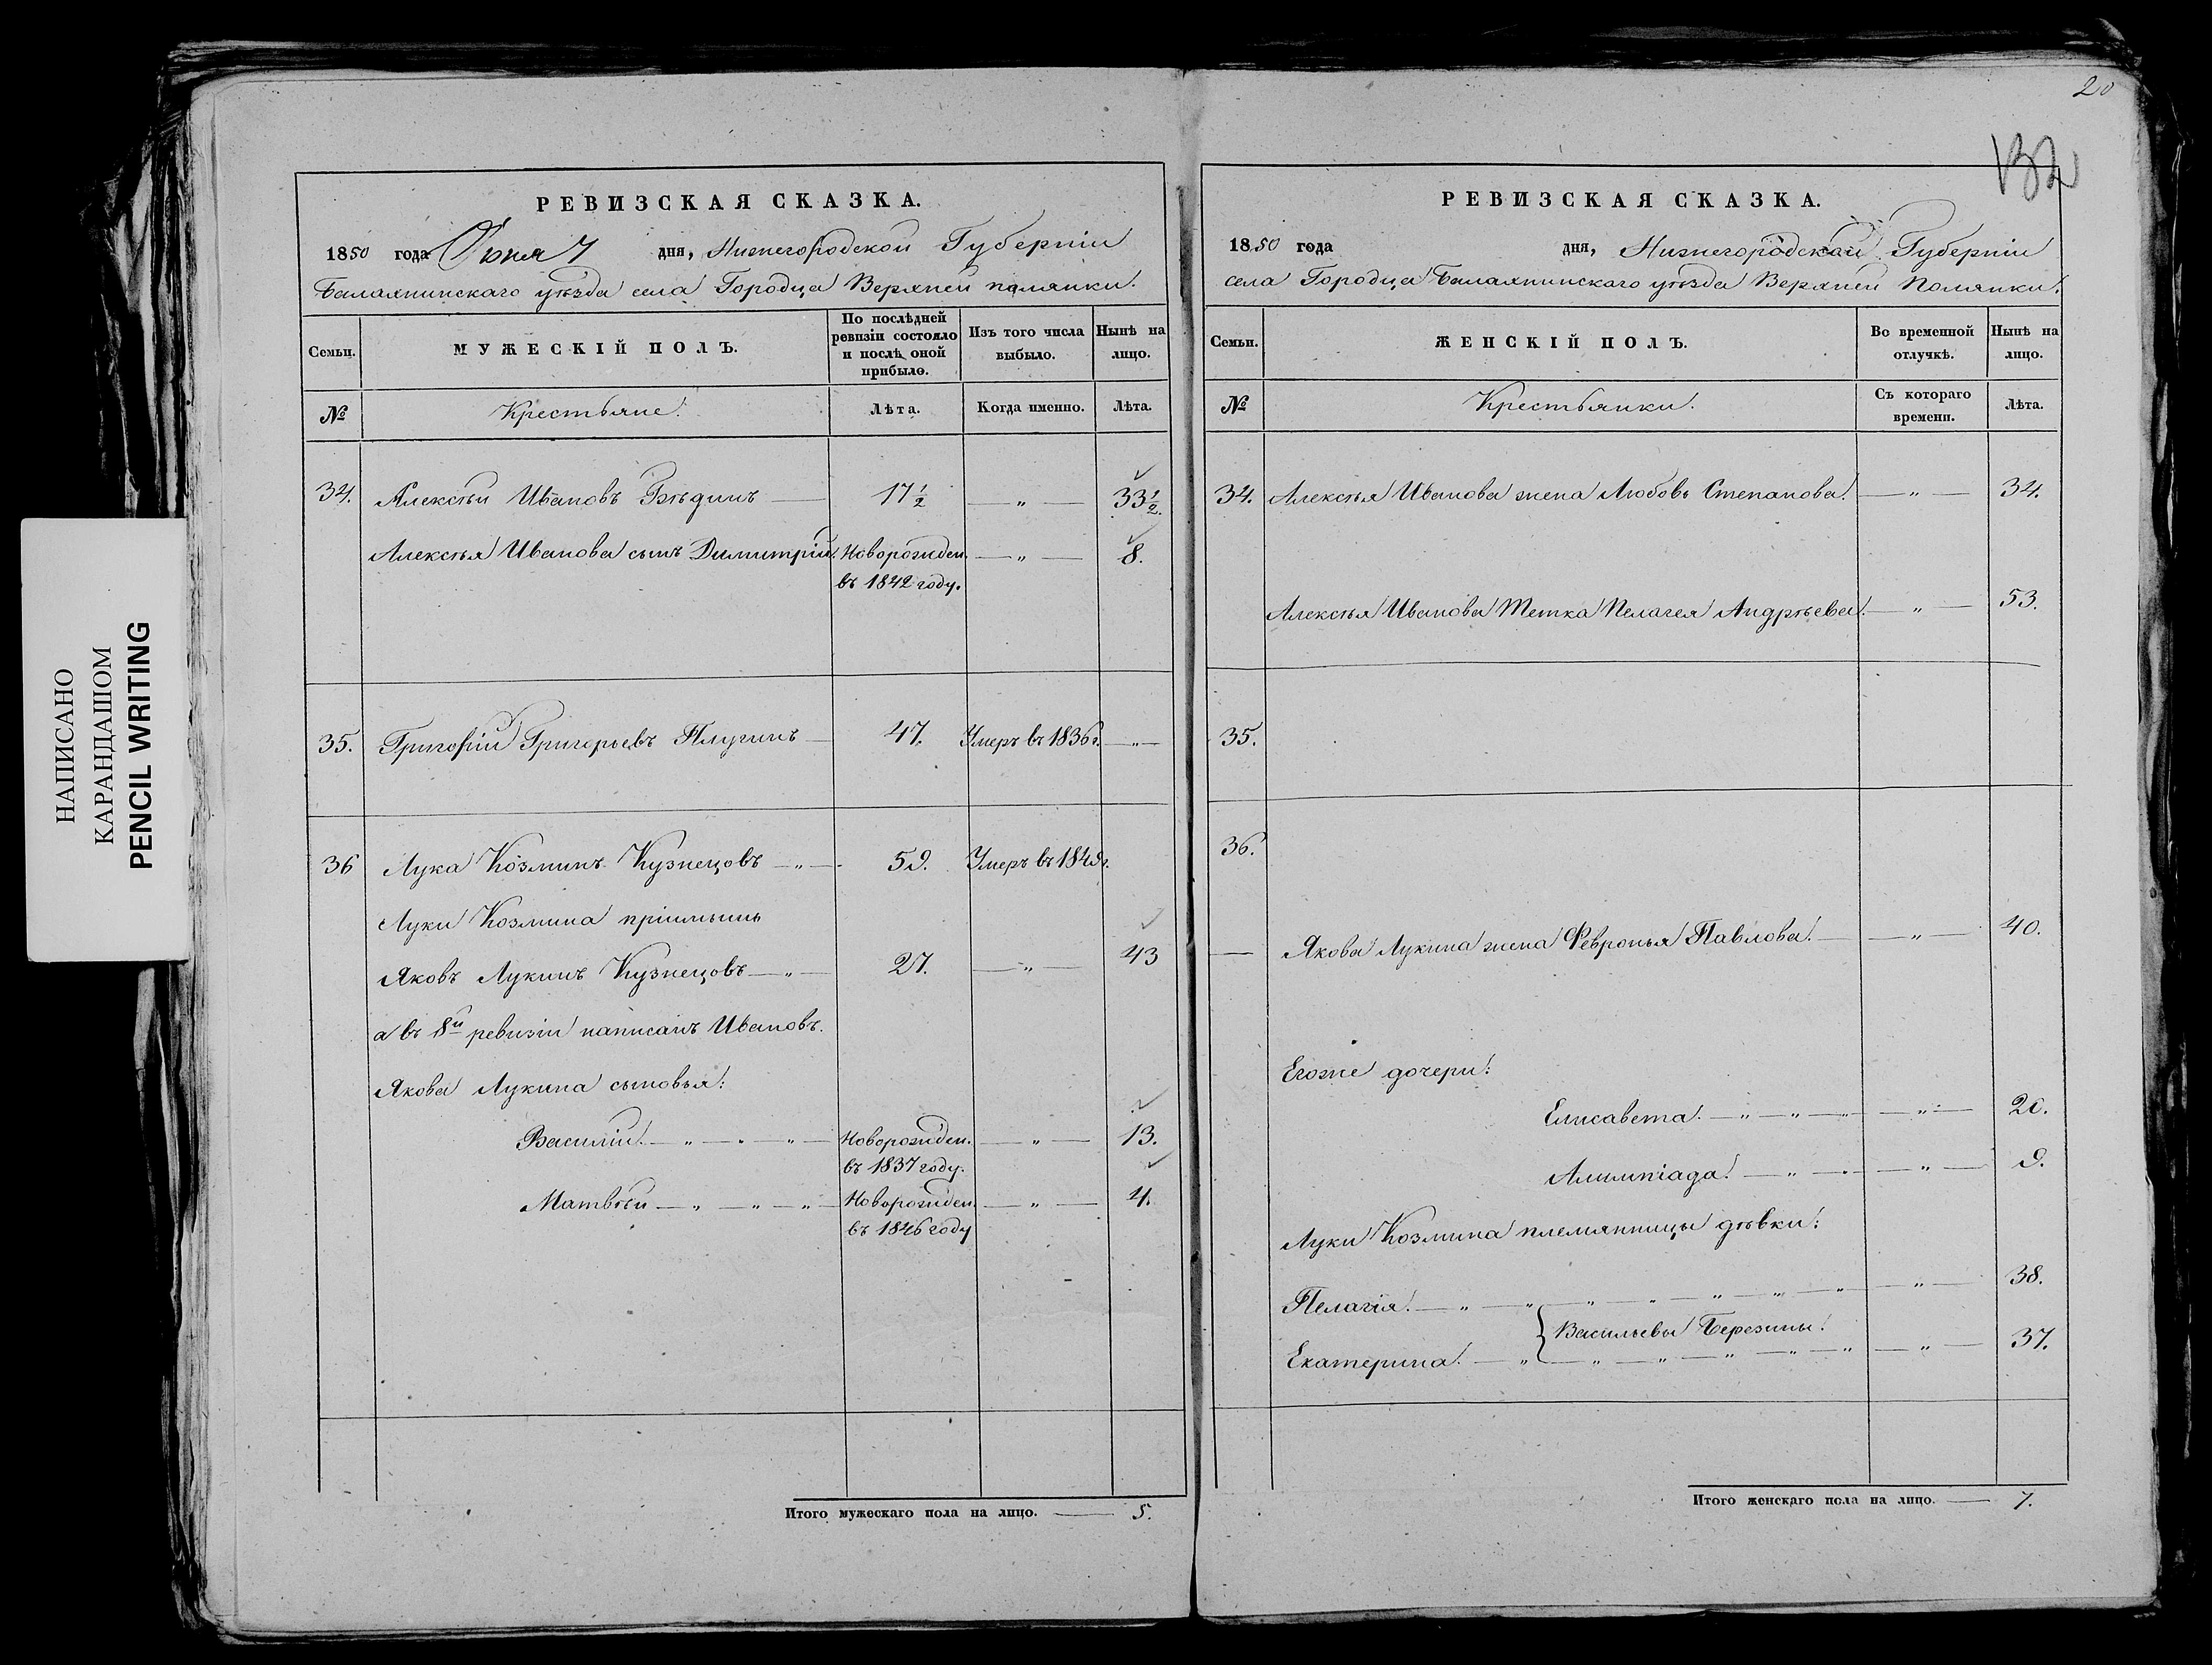 НАПИСАНО
КАРАНДАШОМ
PENCIL WRITING
РЕВИЗСКАЯ СКАЗКА.
1850 года Июня 7 дня, Нижегородской Губерніи
Балахнинскаго уѣзда села Городца Верхней полянки.
Семьи.
МУЖЕСКІЙ ПОЛЪ.
По послѣдней ревизіи состояло и послѣ оной прибыло.
Изъ того числа выбыло.
Нынѣ на лицо.
№
Крестьяне.
Лѣта.
Когда именно.
Лѣта.
34. Алексѣй Ивановъ — 17 1/2 — „ — 33 1/2.
Алексѣя Иванова сынъ Димитрій. Новорожден. — „ — 8.
въ 1842 году.
35. Григорій Григорьевъ — 47. Умеръ въ 1836 г. — „ —
36 Лука Козминъ Кузнецовъ — „ — 59. Умеръ въ 1849 г.
Луки Козмина пріимышъ
Яковъ Лукинъ Кузнецовъ — „ — 27. — „ — 43
а въ 8й ревизіи написанъ Ивановъ.
Якова Лукина сыновья:
Василій. — „ — „ — „ — Новорожден. — „ — 13.
въ 1837 году.
Матвѣй — „ — „ — „ — Новорожден. — „ — 4.
въ 1846 году
Итого мужескаго пола на лицо. — 5.
20
132
РЕВИЗСКАЯ СКАЗКА.
1850 года дня, Нижегородской Губерніи
села Городца Балахнинскаго уѣзда Верхней Полянки.
Семьи.
ЖЕНСКІЙ ПОЛЪ.
Во временной отлучкѣ.
Нынѣ на лицо.
№
Крестьянки.
Съ котораго времени.
Лѣта.
34. Алексѣя Иванова жена Любовь Степанова. — „ — 34.
Алексѣя Иванова Тетка Пелагея Андрѣева. — „ — 53.
35.
36.
— Якова Лукина жена Февронья Павлова. — „ — 40.
Егоже дочери:
Елисавета. — „ — „ — „ — 20.
Алимпіада. — „ — „ — „ — 9.
Луки Козмина племянницы дѣвки:
Пелагія. — „ — „ — „ — „ — 38.
} Васильевы Березины.
Екатерина. — „ — „ — „ — „ — 37.
Итого женскаго пола на лицо. — 7.